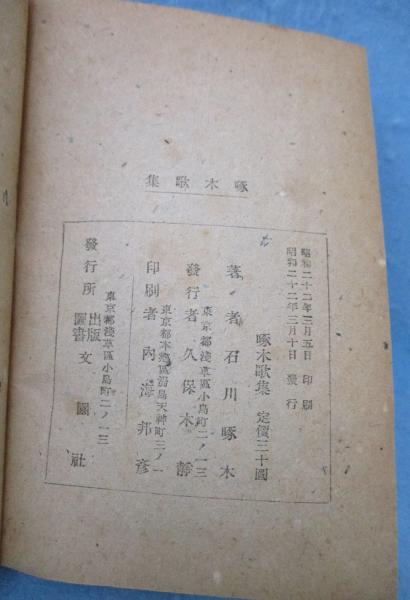 啄木歌集
昭和二十二年三月五日 印刷
昭和二十二年三月十日 發行
啄木歌集 定價三十圓
著者 石川啄木
東京都淺草區小島町二ノ一三
發行者 久保木靜
東京都本鄕區湯島天神町三ノ一
印刷者 內海邦彥
東京都淺草區小島町二ノ一三
發行所 出版圖書 文園社